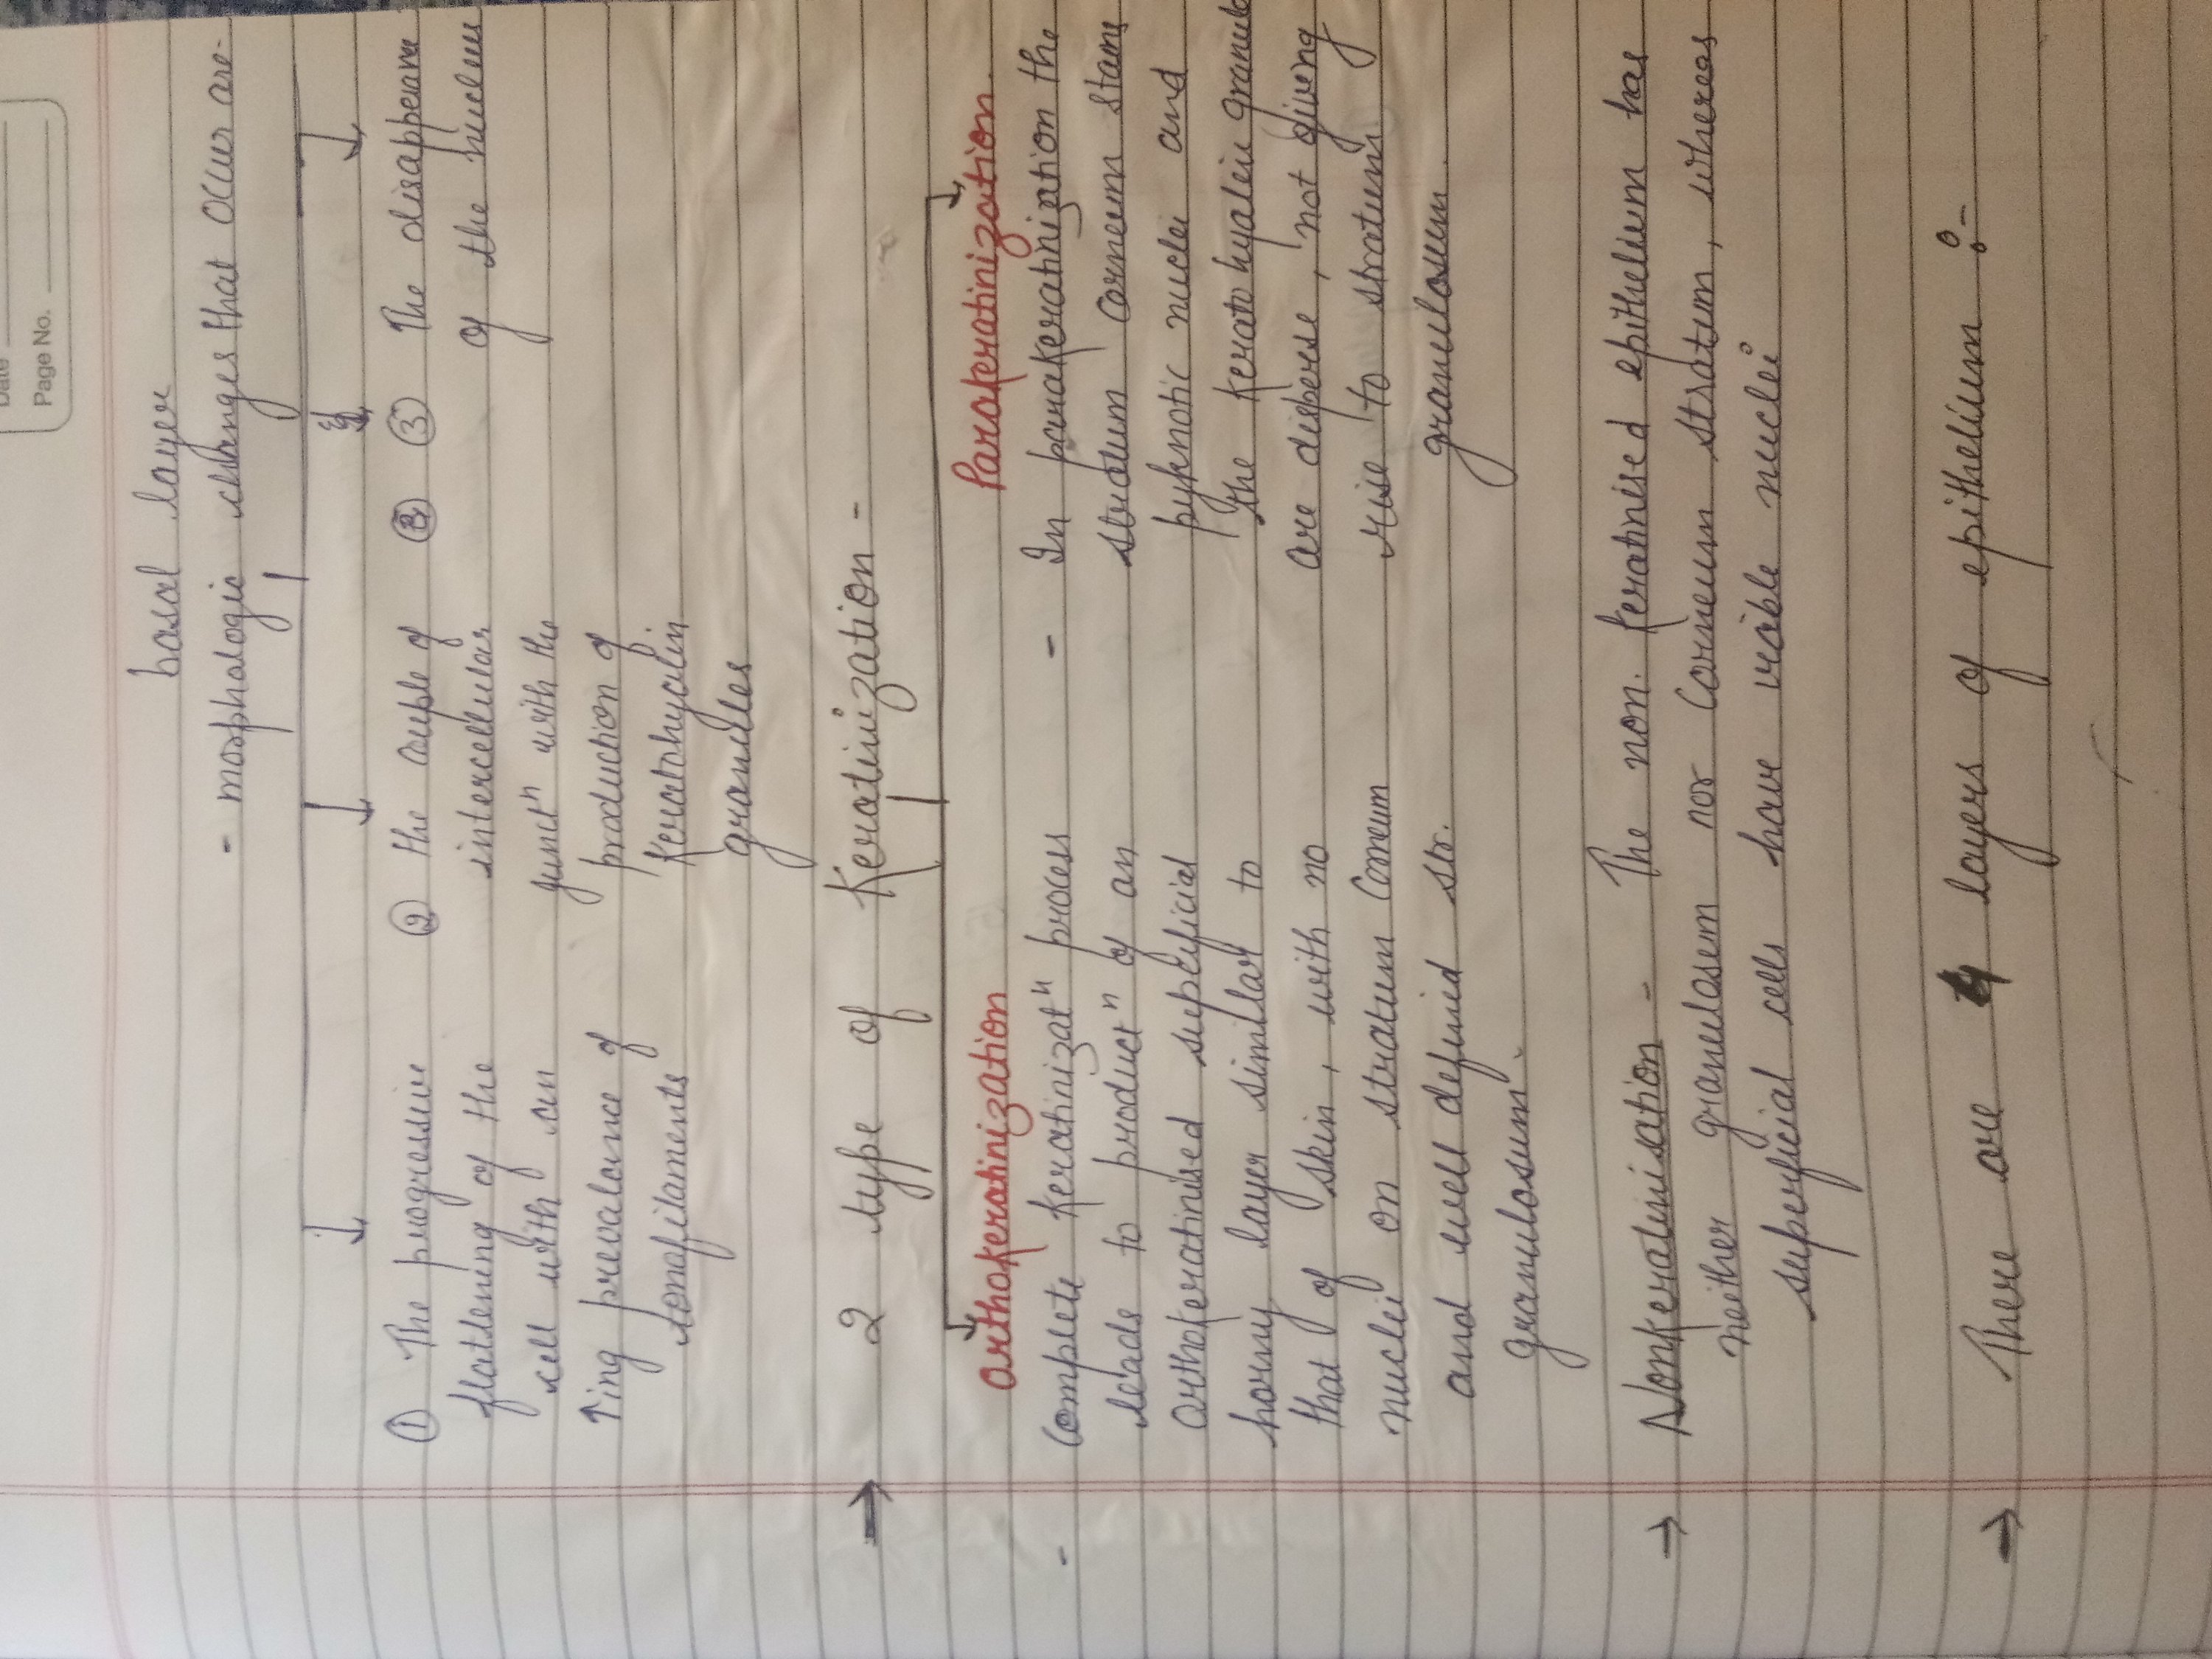 Date
Page No.
basal layer
- morphologic changes that occur are-
① The progressive
flattening of the
cell with an
↑ing prevalance of
tonofilaments
② the couple of
intercellular
junctⁿ with the
production of
keratohyalin
granules
③ The disappearan
of the nucleus
→ 2 type of Keratinization -
Orthokeratinization
- Complete keratinizatⁿ process
leads to productⁿ of an
orthokeratinised superficial
horny layer similar to
that of skin, with no
nuclei on stratum Corneum
and well defined str.
granulosum.
Parakeratinization
- In parakeratinization the
stratum corneum stans
pyknotic nuclei and
the keratohyalein granule
are disperse, not giving
rise to stratum
granulosum.
→ Nonkeratinisation - The non. keratinised epithelium has
neither granulosem nor Corneum stratum, whereas
superficial cells have viable nuclei
→ There are 4 layers of epithelium :-